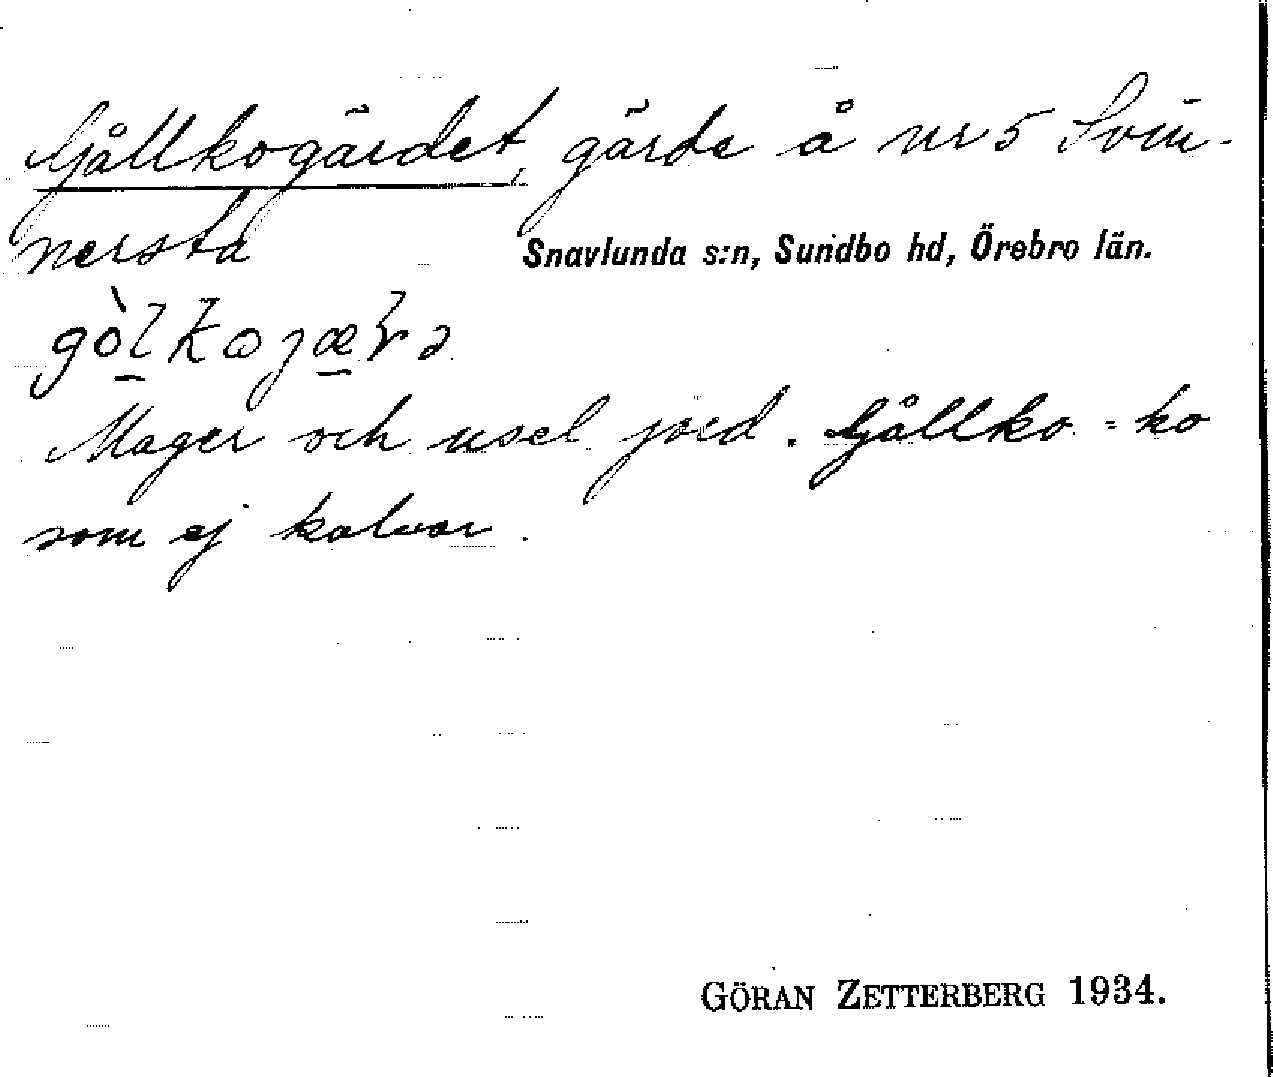 Gållkogärdet, gärde å nr 5 Svin-
nersta
Snavlunda s:n, Sundbo hd, Örebro län.
Mager och usel jord. Gållko = ko
som ej kalvar.
GÖRAN ZETTERBERG 1934.